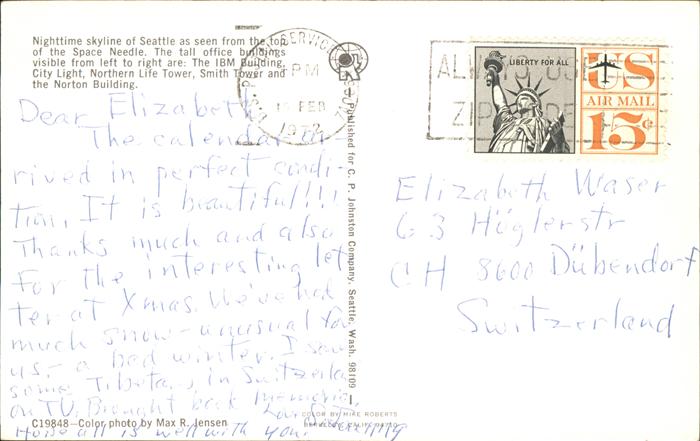 Nighttime skyline of Seattle as seen from the top
of the Space Needle. The tall office buildings
visible from left to right are: The IBM Building,
City Light, Northern Life Tower, Smith Tower and
the Norton Building.
Dear Elizabeth
The calendar ar-
rived in perfect condi-
tion. It is beautiful!!!
Thanks much and also
for the interesting let
ter at Xmas. We've had
much snow-unusual for
us - a bad winter. I saw
some Tibetans in Switzerla
on TV. Brought back memories
Love
Hope all is well with you.
C19848—Color photo by Max R. Jensen
Published for C. P. Johnston Company, Seattle, Wash. 98109
COLOR BY MIKE ROBERTS
PM
FEB
1972
ALWAYS USE
ZIP CODE
LIBERTY FOR ALL
US
AIR MAIL
15¢
Elizabeth Waser
63 Höglerstr
CH 8600 Dübendorf
Switzerland